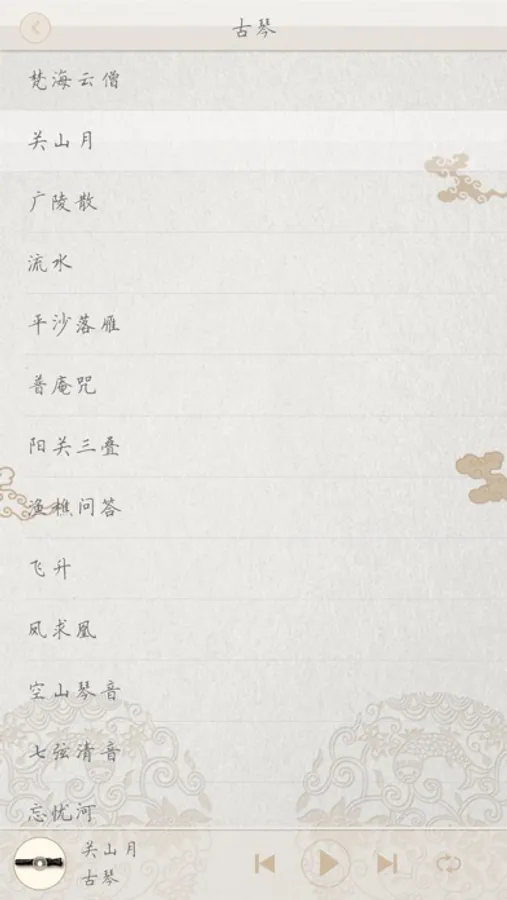 古琴
梵海云僧
关山月
广陵散
流水
平沙落雁
普庵咒
阳关三叠
渔樵问答
飞升
凤求凰
空山琴音
七弦清音
忘忧河
关山月
古琴